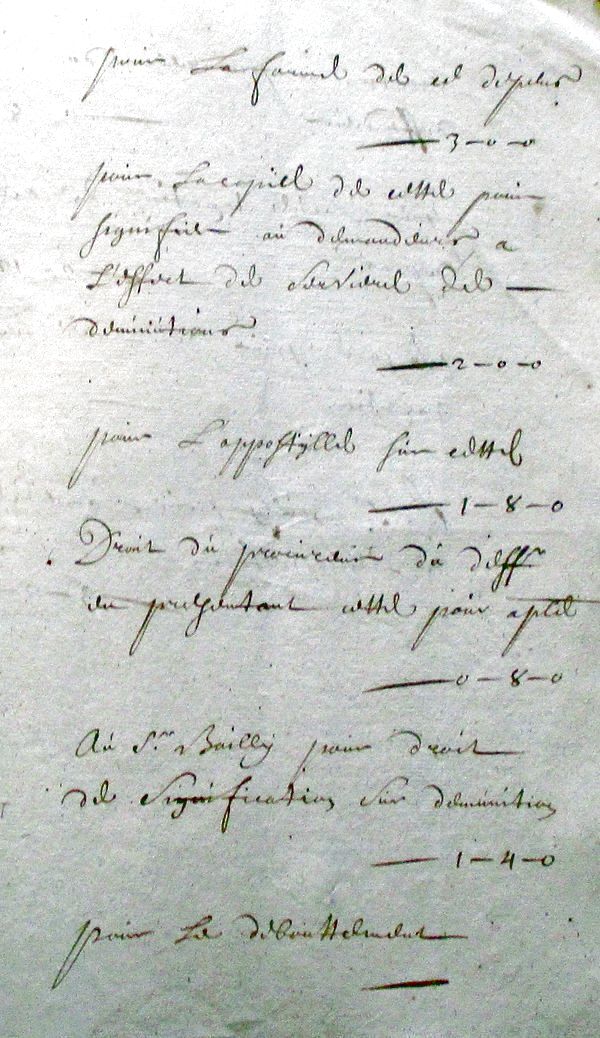 pour La forme de ce depens
3-0-0
pour La copie de cette pour
signifier au demandeurs a
L'effect de servierel des
deminutions
2-0-0
pour L'appostylle sur cette
1-8-0
Droit du procureur du deffr
en presentant cette pour aple
0-8-0
Au Sr Bailly pour droit
de Signification sur deminution
1-4-0
pour Le debouttement